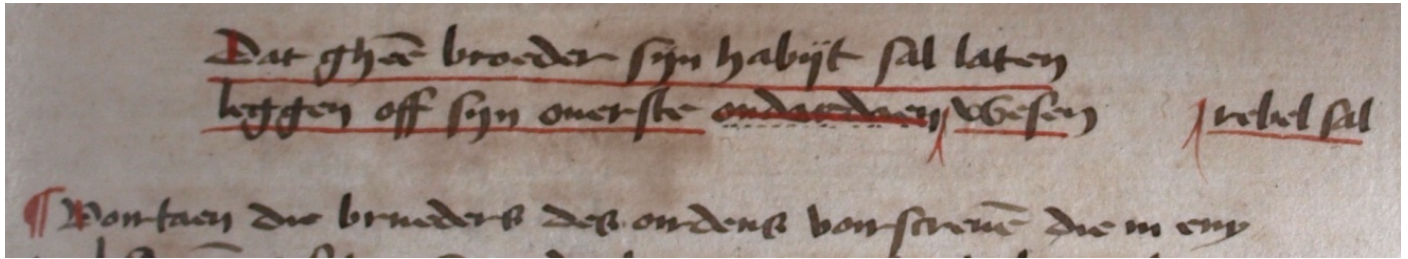 Dat gheē broeder sijn habijt sal laten
leggen off sijn ouerste onderdaen wesen rebel sal
¶ Voirtaen die brueders des oirdens voirscreuē die in eny